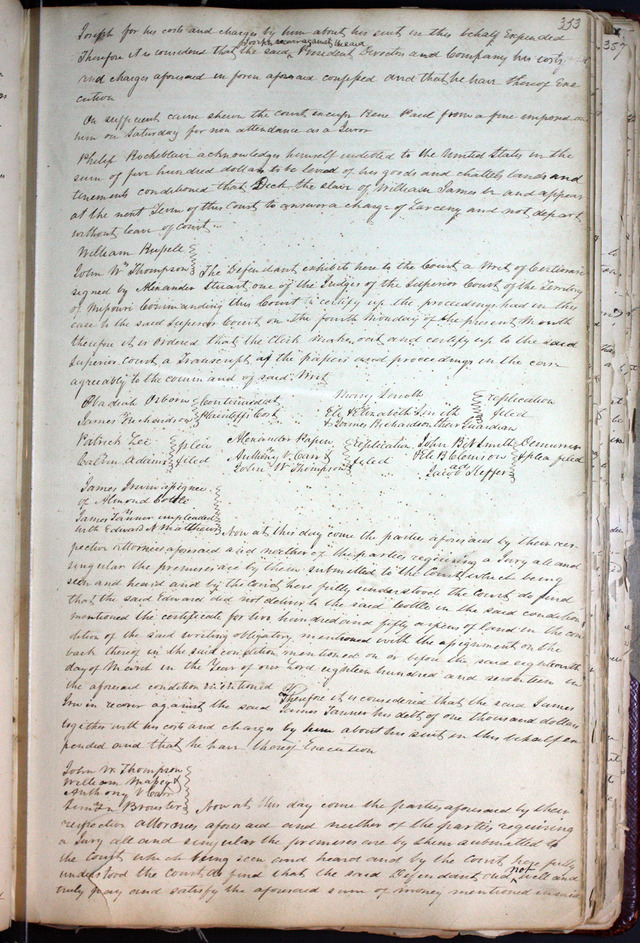 353
Joseph for his costs and charges by him about his suit in this behalf Expended
Joseph recover against the said
Therefore it is considered that the said President Director and Company his costs
and charges aforesaid in form aforesaid confessed and that he have thereof Exe
cution
On sufficient cause shewn the court excuses Rene Paul from a fine imposed on
him on Saturday for non attendance as a Juror
Philip Rocheblair acknowledges himself indebted to the United States in the
sum of five hundred dollars to be levied of his goods and chattels lands and
tenements conditioned that Dick the slave of William James be and appear
at the next Term of this Court to answer a charge of Larceny and not depart
without leave of court
William Russell
John W Thompson The Defendant exhibits here to the Court a Writ of Certiorari
signed by Alexander Stuart one of the Judges of the Superior Court of the Territory
of Missouri Commanding this Court to certify up the proceedings had in this
case to the said Superior Court on the fourth Monday of the present Month
therefore it is ordered that the Clerk make out and certify up to the said
Superior court a Transcript of the papers and proceedings in the case
agreeably to the command of said Writ
Obadiah Osborn Continued at Mary Smith replication
James Richardson Plaintiffs Cost Elizabeth Smith filed
James Richardson their Guardian
Patrick Lee plea Alexander Papin replication John B N Smith Demurrer
Calvin Adams filed Anthony V Carr filed Eli B Clemson & plea filed
John W Thompson ad
Jacob
James Irwin assignee
of Almond Cottle
vs
James Tanner impleaded
with Edward N Matthews Now at this day come the parties aforesaid by their res
pective attornies aforesaid and neither of the parties requiring a Jury all and
singular the premises are by them submitted to the Court which being
seen and heard and by the Court here fully understood the Court do find
that the said Edward did not deliver to the said Cottle in the said condition
mentioned the certificate for two hundred and fifty arpens of land in the con
dition of the said writing obligatory mentioned with the assignment on the
back thereof in the said condition mentioned on or before the said eighteenth
day of March in the Year of our Lord eighteen hundred and seventeen in
the aforesaid condition mentioned Therefore it is considered that the said James
Irwin recover against the said James Tanner his debt of one thousand dollars
together with his costs and charges by him about his suit in this behalf ex
pended and that he have thereof Execution
John W. Thompson
William Massey &
Anthony V Carr
Brouster Now at this day come the parties aforesaid by their
respective attornies aforesaid and neither of the parties requiring
a Jury all and singular the premises are by them submitted to
the Court which being seen and heard and by the Court here fully
understood the Court do find that the said Defendant did not well and
truly pay and satisfy the aforesaid sum of money mentioned in said
357